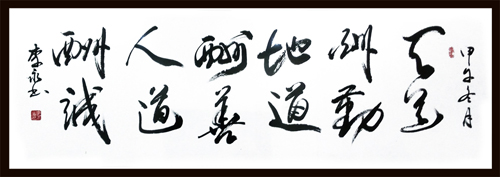 甲午冬月
天道
酬勤
地道
酬善
人道
酬誠
李